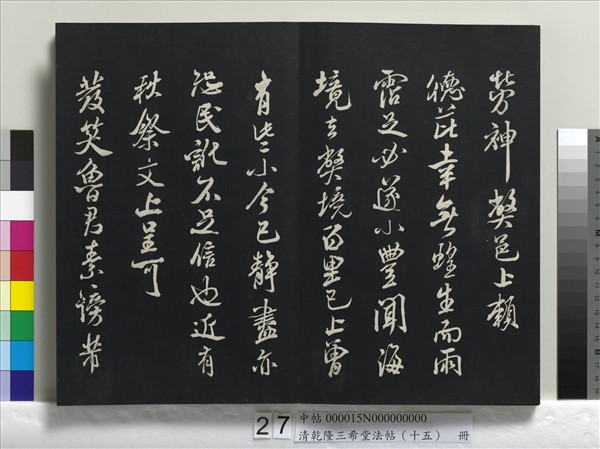 勞神弊邑上賴
德芘幸無蝗生而雨
霑足必遂小豐聞海
境去弊境百里已上曾
有些小今已靜盡亦
恐民訛不足信也近有
秋祭文上呈可
發笑魯君素謗芾
27
中帖 000015N000000000
清乾隆三希堂法帖（十五） 冊